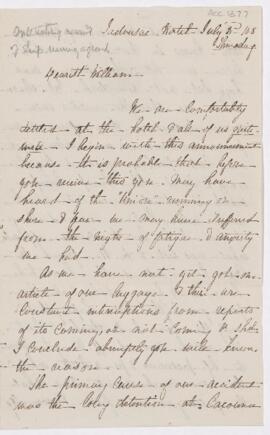 Acc 1277
Interesting account
of Ship running aground
Tadousac Hotel July 5th /68
Sunday
Dearest William
We are comfortably
settled at the hotel & all of us quite
well I begin with this announcement
because it is probable that before
you receive this you may have
heard of the Union running on
shore & fear we may have suffered
from the night of fatigue & anxiety
we had.
As we have not yet got an
article of our luggage & there are
constant interruptions from reports
of its coming, or not coming & shd
I conclude abruptly you will know
the reason.
The primary cause of our accident
was the long detention at Cacouna